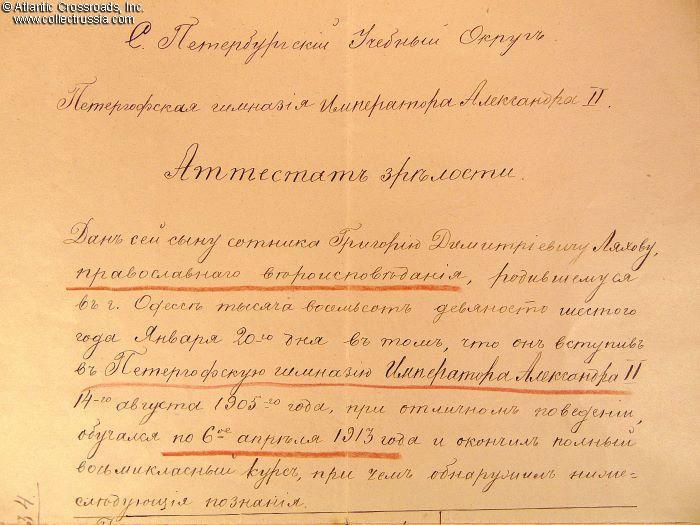 © Atlantic Crossroads, Inc.
www.collectrussia.com
С. Петербургскій Учебный Округъ.
Петергофская гимназія Императора Александра II.
Аттестатъ зрѣлости.
Данъ сей сыну сотника Григорію Димитріевичу Ляхову,
православнаго вѣроисповѣданія, родившемуся
въ г. Одессѣ тысяча восемьсотъ девяносто шестого
года Января 20-го дня въ томъ, что онъ вступивъ
въ Петергофскую гимназію Императора Александра II
14-го августа 1905-го года, при отличномъ поведеніи,
обучался по 6-ое апрѣля 1913 года и окончилъ полный
восьмикласный курсъ, при чемъ обнаружилъ ниже-
слѣдующія познанія.
34.